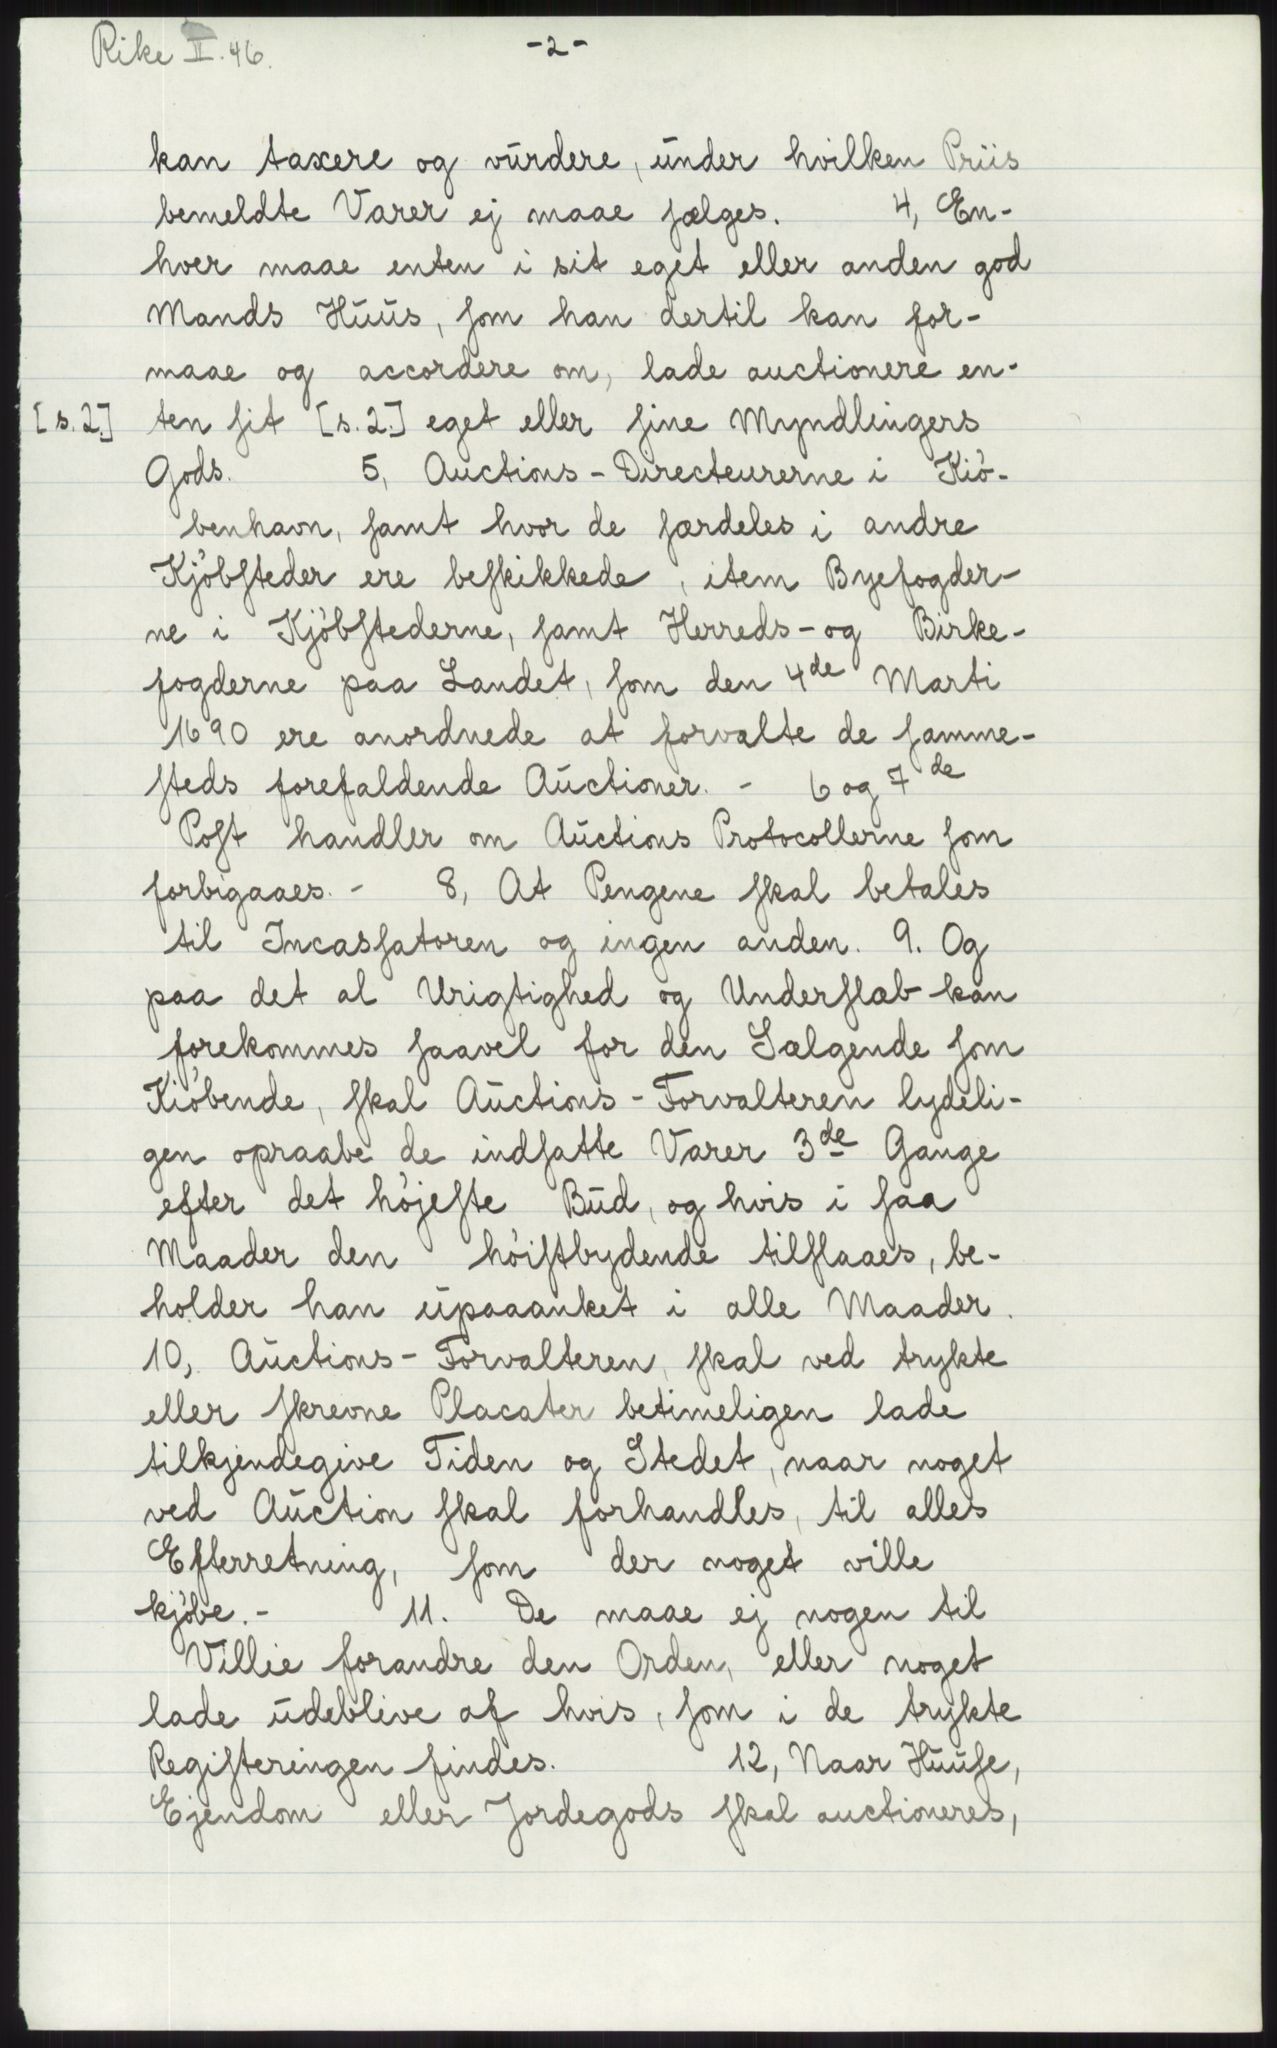 Rike II. 46.
-2-
kan taxere og vurdere, under hvilken Priis
bemeldte Varer ej maae ſælges. 4, En-
hver maae enten i sit eget eller anden god
Mands Huus, ſom han dertil kan for-
maae og accordere om, lade auctionere en-
[s.2.] ten ſit [s.2.] eget eller ſine Myndlingers
Gods. 5, Auctions-Directeurerne i Kiö-
benhavn, ſamt hvor de ſærdeles i andre
Kjöbſteder ere beſkikkede, item Byefogder-
ne i Kjöbſtederne, ſamt Herreds- og Birke-
fogderne paa Landet, ſom den 4de Marti
1690 ere anordnede at forvalte de ſamme-
ſteds forefaldende Auctioner. - 6 og 7de
Poſt handler om Auctions Protocollerne ſom
forbigaaes. - 8, At Pengene ſkal betales
til Incasſatoren og ingen anden. 9. Og
paa det al Urigtighed og Underſlæb kan
forekommes ſaavel for den Sælgende ſom
Kiöbende, ſkal Auctions-Forvalteren lydeli-
gen opraabe de indſatte Varer 3de Gange
efter det höjeſte Bud, og hvis i ſaa
Maader den höiſtbydende tilſlaaes, be-
holder han upaaanket i alle Maader.
10, Auctions-Forvalteren, ſkal ved trykte
eller ſkrevne Placater betimeligen lade
tilkjendegive Tiden og Stedet, naar noget
ved Auction ſkal forhandles, til alles
Efterretning, ſom der noget ville
kjöbe. - 11. De maae ej nogen til
Villie forandre den Orden, eller noget
lade udeblive af hvis, ſom i de trykte
Regiſteringen findes. 12, Naar Huuſe,
Ejendom eller Jordegods ſkal auctioneres,